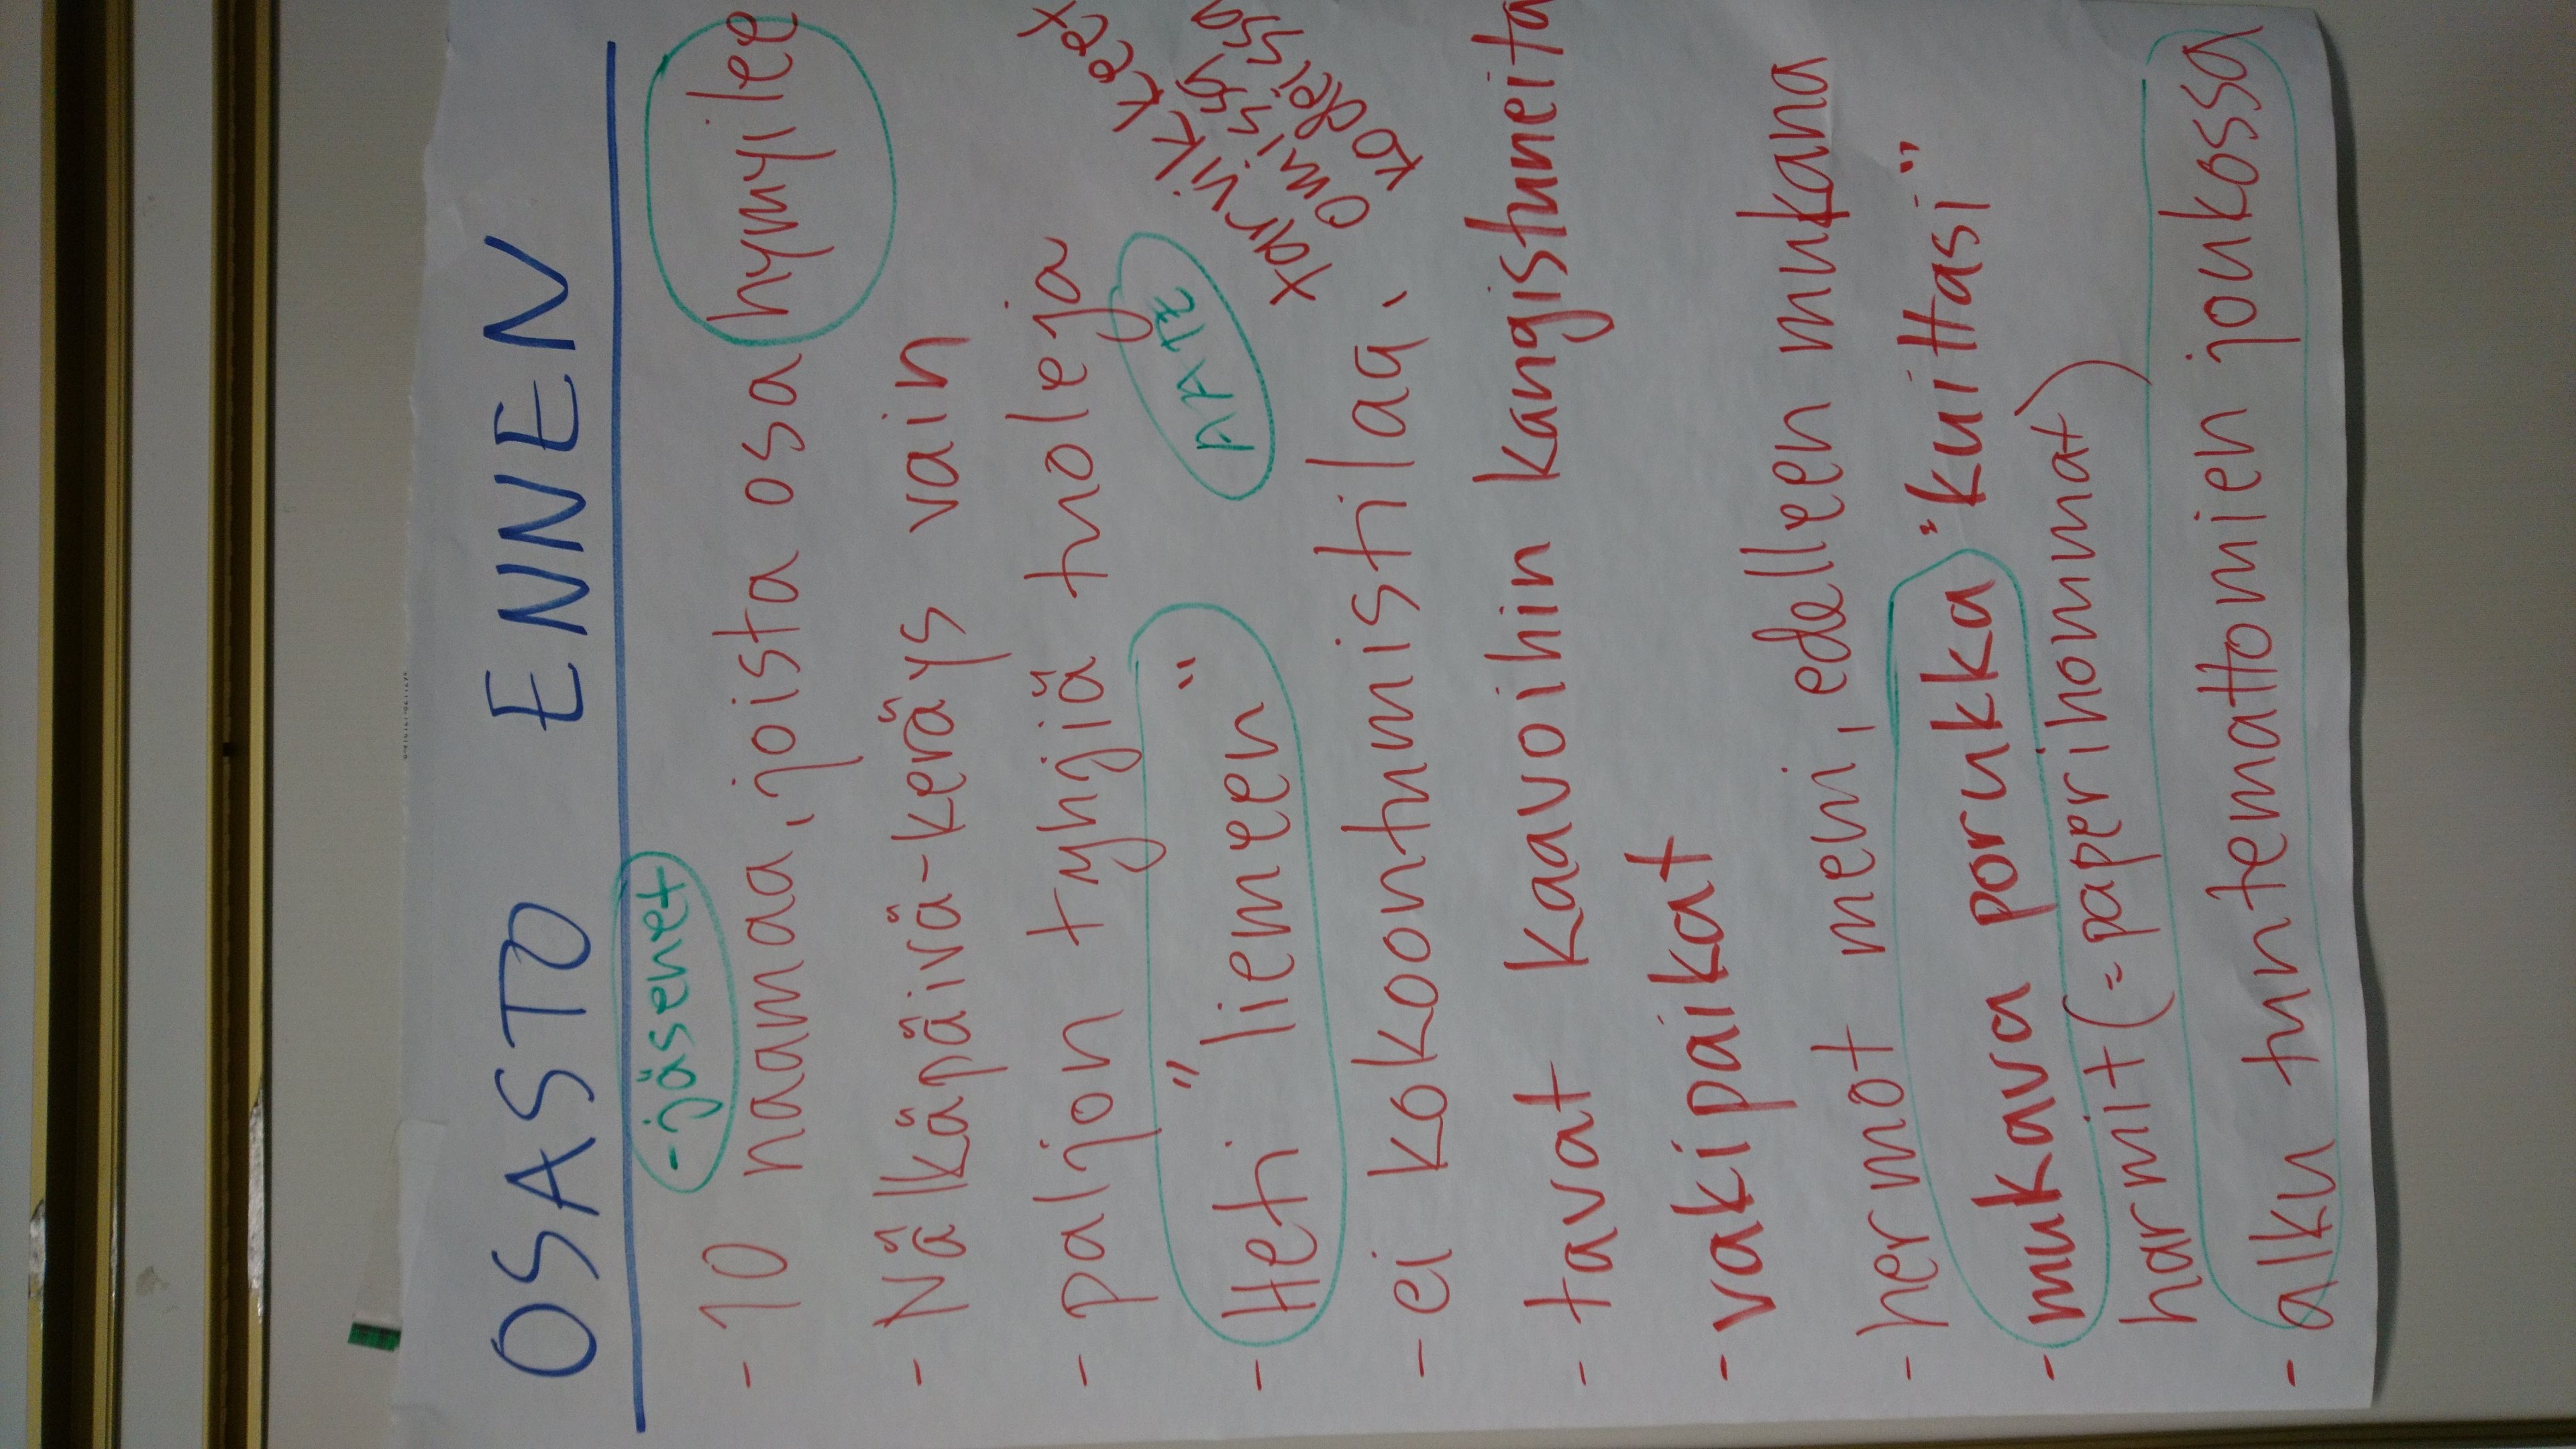 OSASTO ENNEN
-jäsenet
- 10 naamaa, joista osa hymyilee
- Nälkäpäivä-keräys vain
- paljon tyhjiä tuoleja
AATE
- Heti "liemeen"
tarvikkeet
omissa
kodeissa
- ei kokoontumistilaa,
- tavat kaavoihin kangistuneita
- vakipaikat
- hermot meni, edelleen mukana
- mukava porukka "kuittasi"
harmit (=paperihommat)
- alku tuntemattomien joukossa